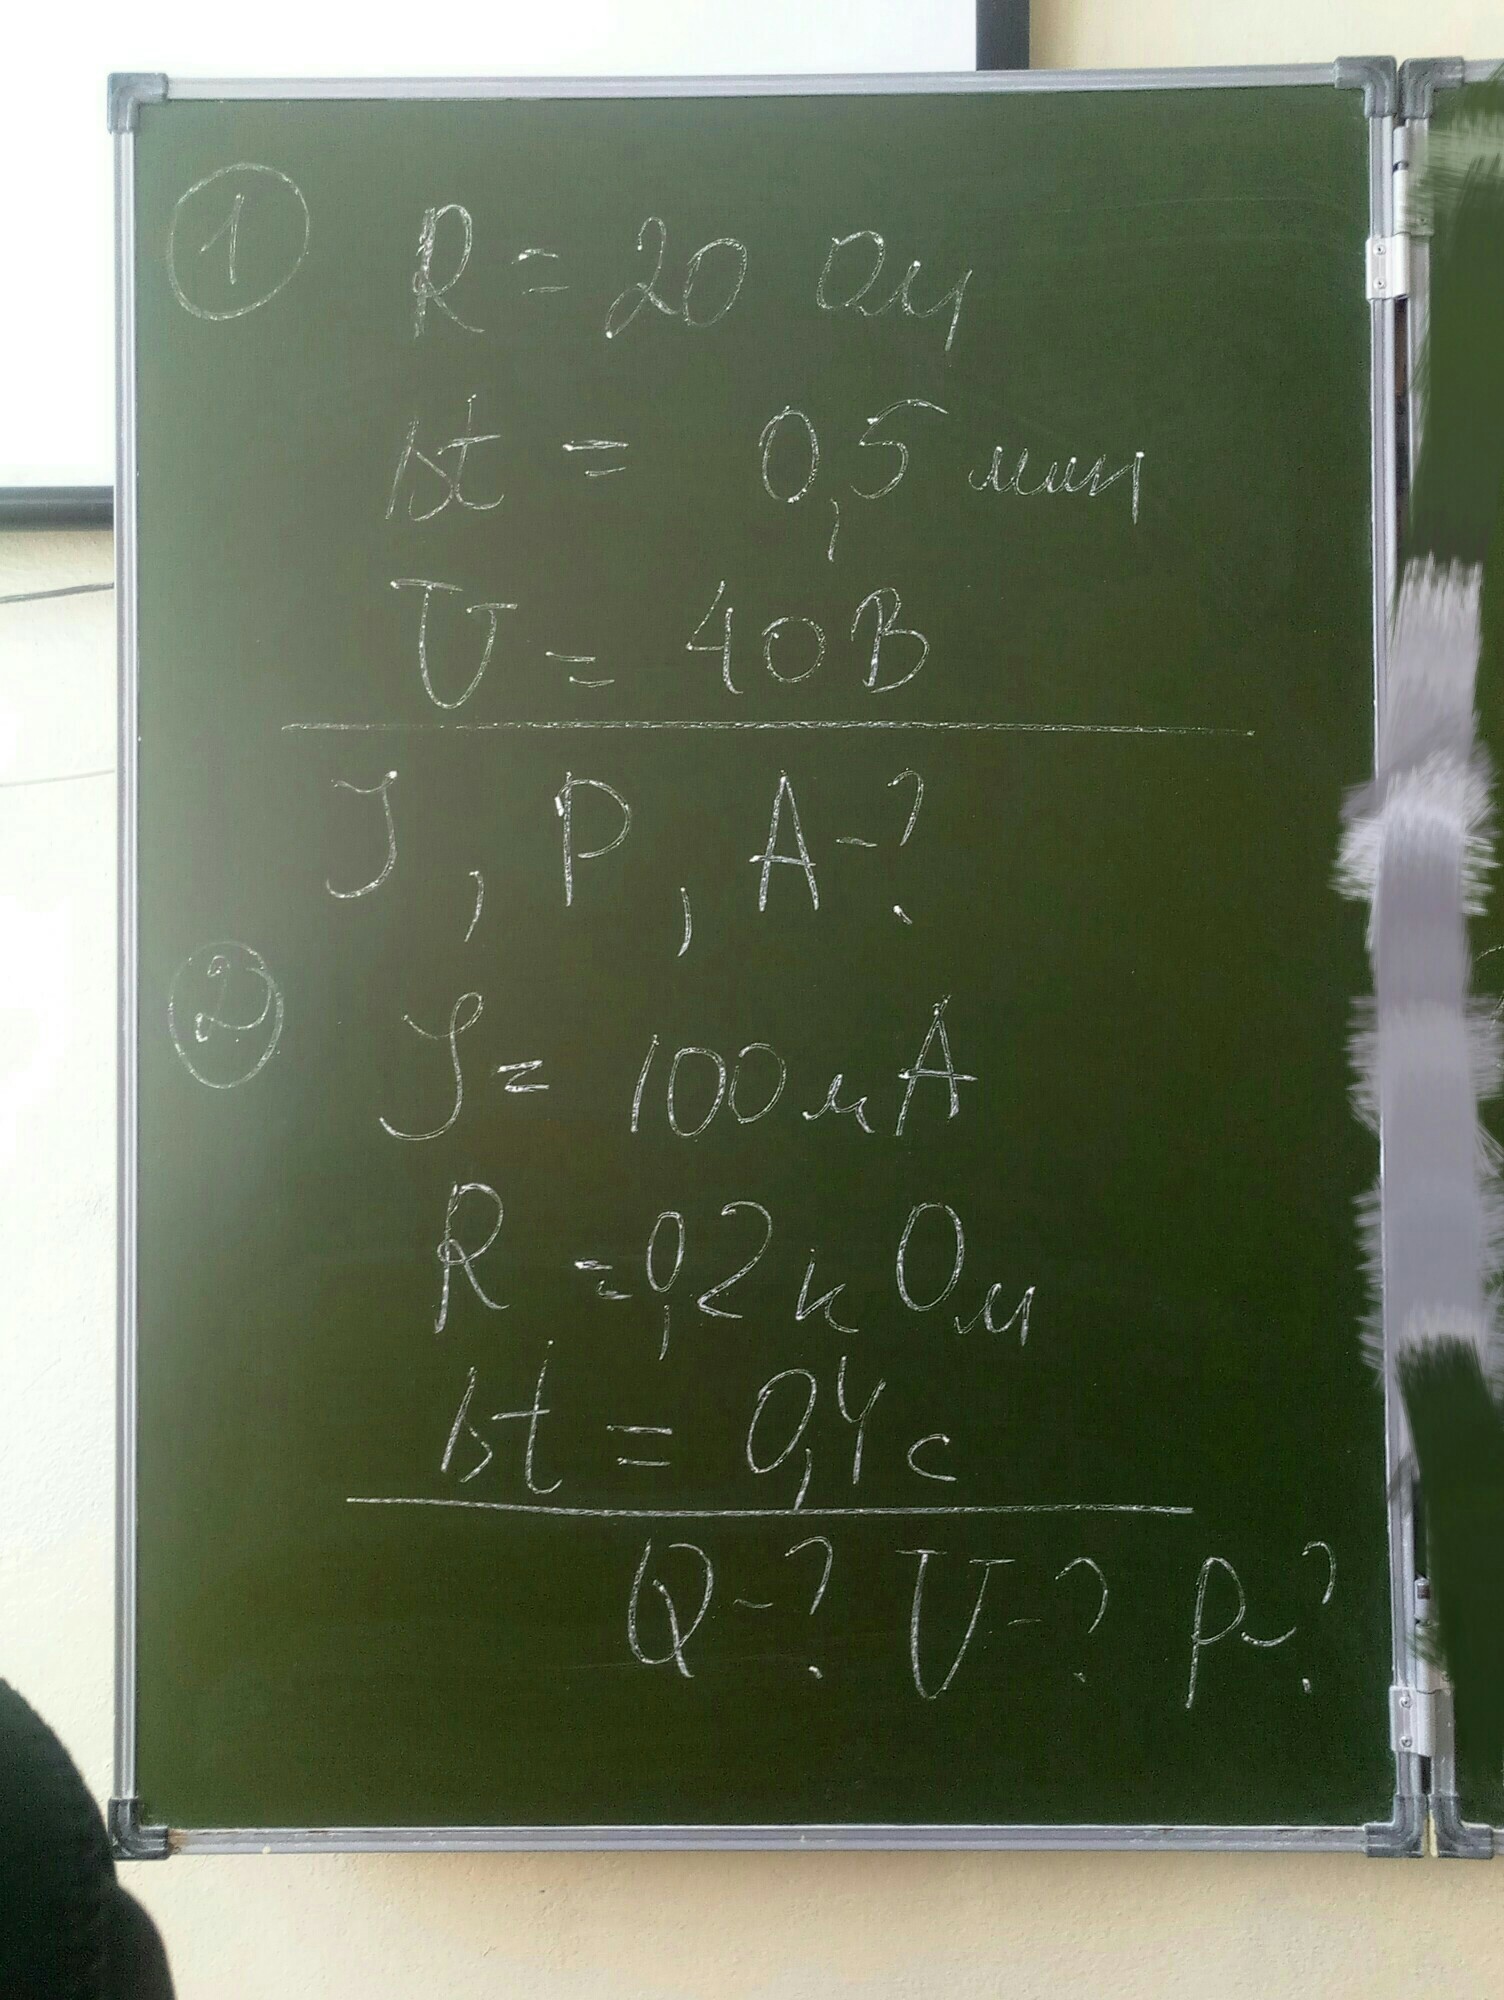 1
R = 20 Ом
Δt = 0,5 мин
U = 40 В
I, P, A - ?
2
I = 100 мА
R = 0,2 кОм
Δt = 0,4 с
Q - ? U - ? P - ?